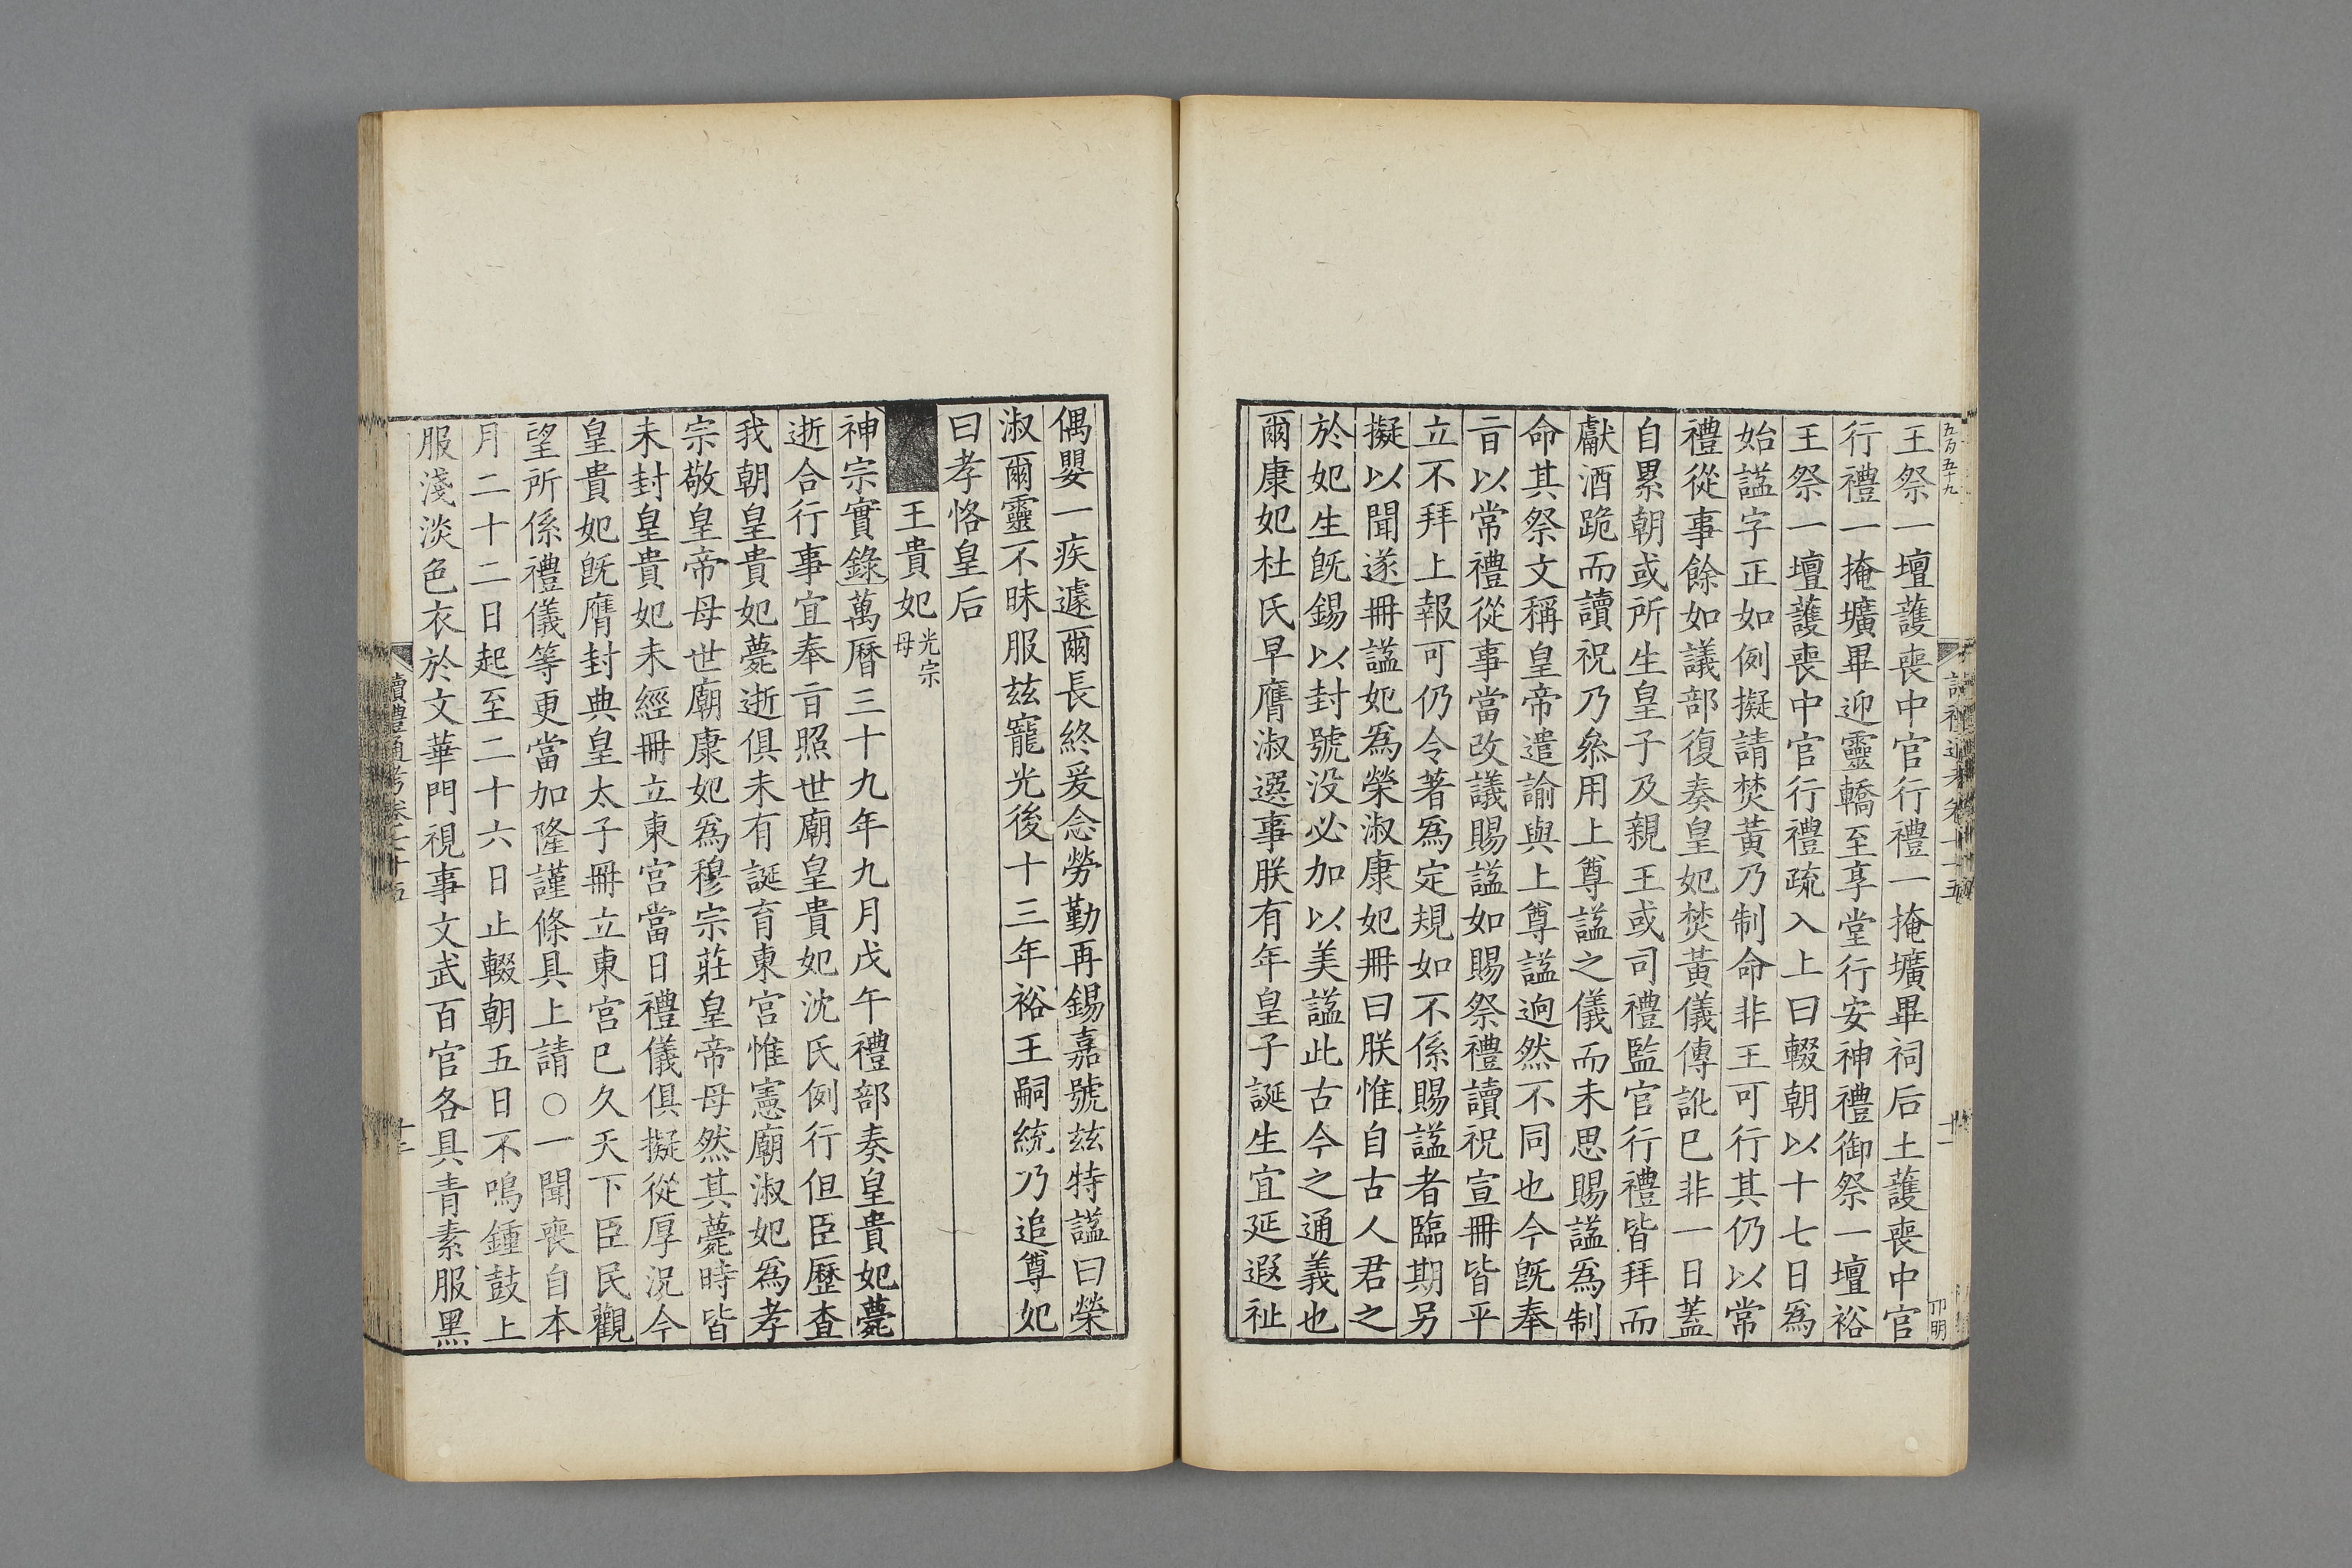 五百五十九
王祭一壇護喪中官行禮一掩壙畢祠后土護喪中官
行禮一掩壙畢迎靈轎至享堂行安神禮御祭一壇裕
王祭一壇護喪中官行禮疏入上曰輟朝以十七日爲
始謚字正如例擬請焚黃乃制命非王可行其仍以常
禮從事餘如議部復奏皇妃焚黃儀傳訛已非一日蓋
自累朝或所生皇子及親王或司禮監官行禮皆拜而
獻酒跪而讀祝乃叅用上尊謚之儀而未思賜謚爲制
命其祭文稱皇帝遣諭與上尊謚逈然不同也今既奉
㫖以常禮從事當改議賜謚如賜祭禮讀祝宣冊皆平
立不拜上報可仍令著爲定規如不係賜謚者臨期另
擬以聞遂冊謚妃爲榮淑康妃冊曰朕惟自古人君之
於妃生既錫以封號没必加以美謚此古今之通義也
爾康妃杜氏早膺淑選事朕有年皇子誕生宜延遐祉
偶嬰一疾遽爾長終爰念勞勤再錫嘉號兹特謚曰榮
淑爾靈不昧服兹寵光後十三年裕王嗣統乃追尊妃
曰孝恪皇后
王貴妃光宗母
神宗實錄萬曆三十九年九月戊午禮部奏皇貴妃薨
逝合行事宜奉㫖照世廟皇貴妃沈氏例行但臣歷查
我朝皇貴妃薨逝俱未有誕育東宫惟憲廟淑妃爲孝
宗敬皇帝母世廟康妃爲穆宗莊皇帝母然其薨時皆
未封皇貴妃未經冊立東宫當日禮儀俱擬從厚況今
皇貴妃既膺封典皇太子冊立東宫已久天下臣民觀
望所係禮儀等更當加隆謹條具上請○一聞喪自本
月二十二日起至二十六日止輟朝五日不鳴鍾鼓上
服淺淡色衣於文華門視事文武百官各具青素服黑
讀禮通考卷二十五